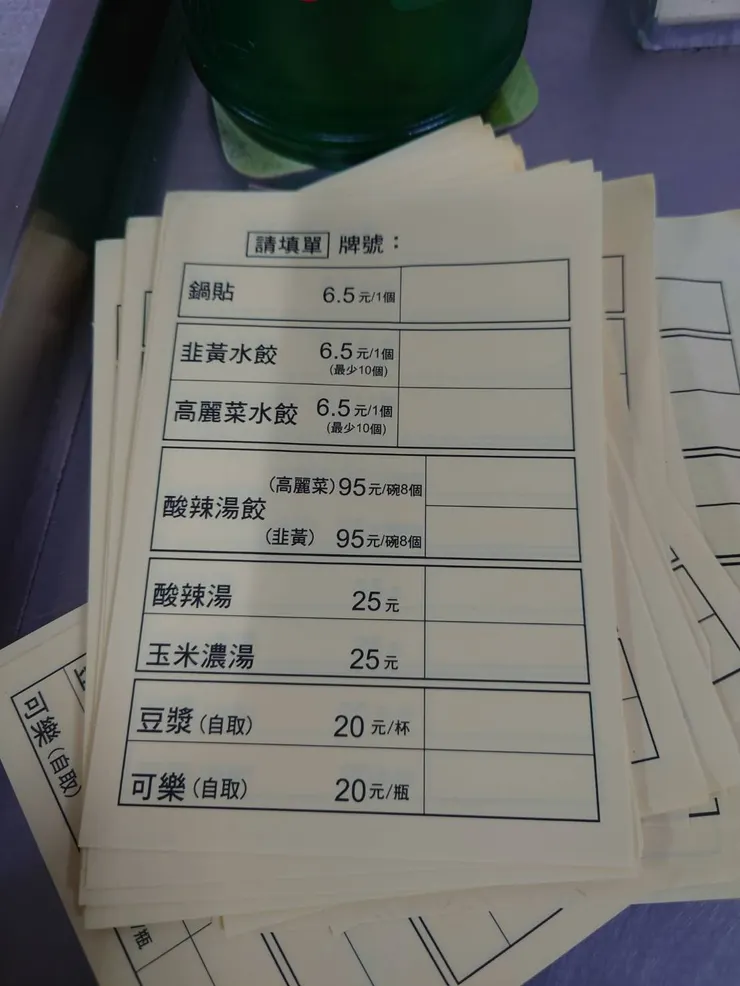 請填單 牌號：
鍋貼 6.5元/1個
韭黃水餃 6.5元/1個
(最少10個)
高麗菜水餃 6.5元/1個
(最少10個)
酸辣湯餃 (高麗菜)95元/碗8個
(韭黃) 95元/碗8個
酸辣湯 25元
玉米濃湯 25元
豆漿(自取) 20元/杯
可樂(自取) 20元/瓶
可樂(自取)
/瓶